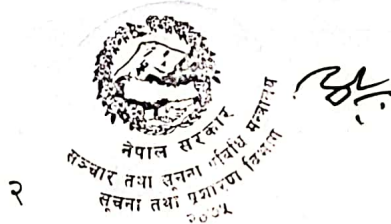 नेपाल सरकार
सञ्चार तथा सूचना प्रविधि मन्त्रालय
सूचना तथा प्रशारण विभाग
२०७५
२